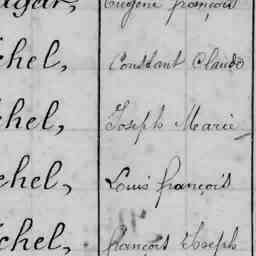 Eugène françois
chel, Constant Claude
chel, Joseph Marie
chel, Louis françois
chel, françois Joseph